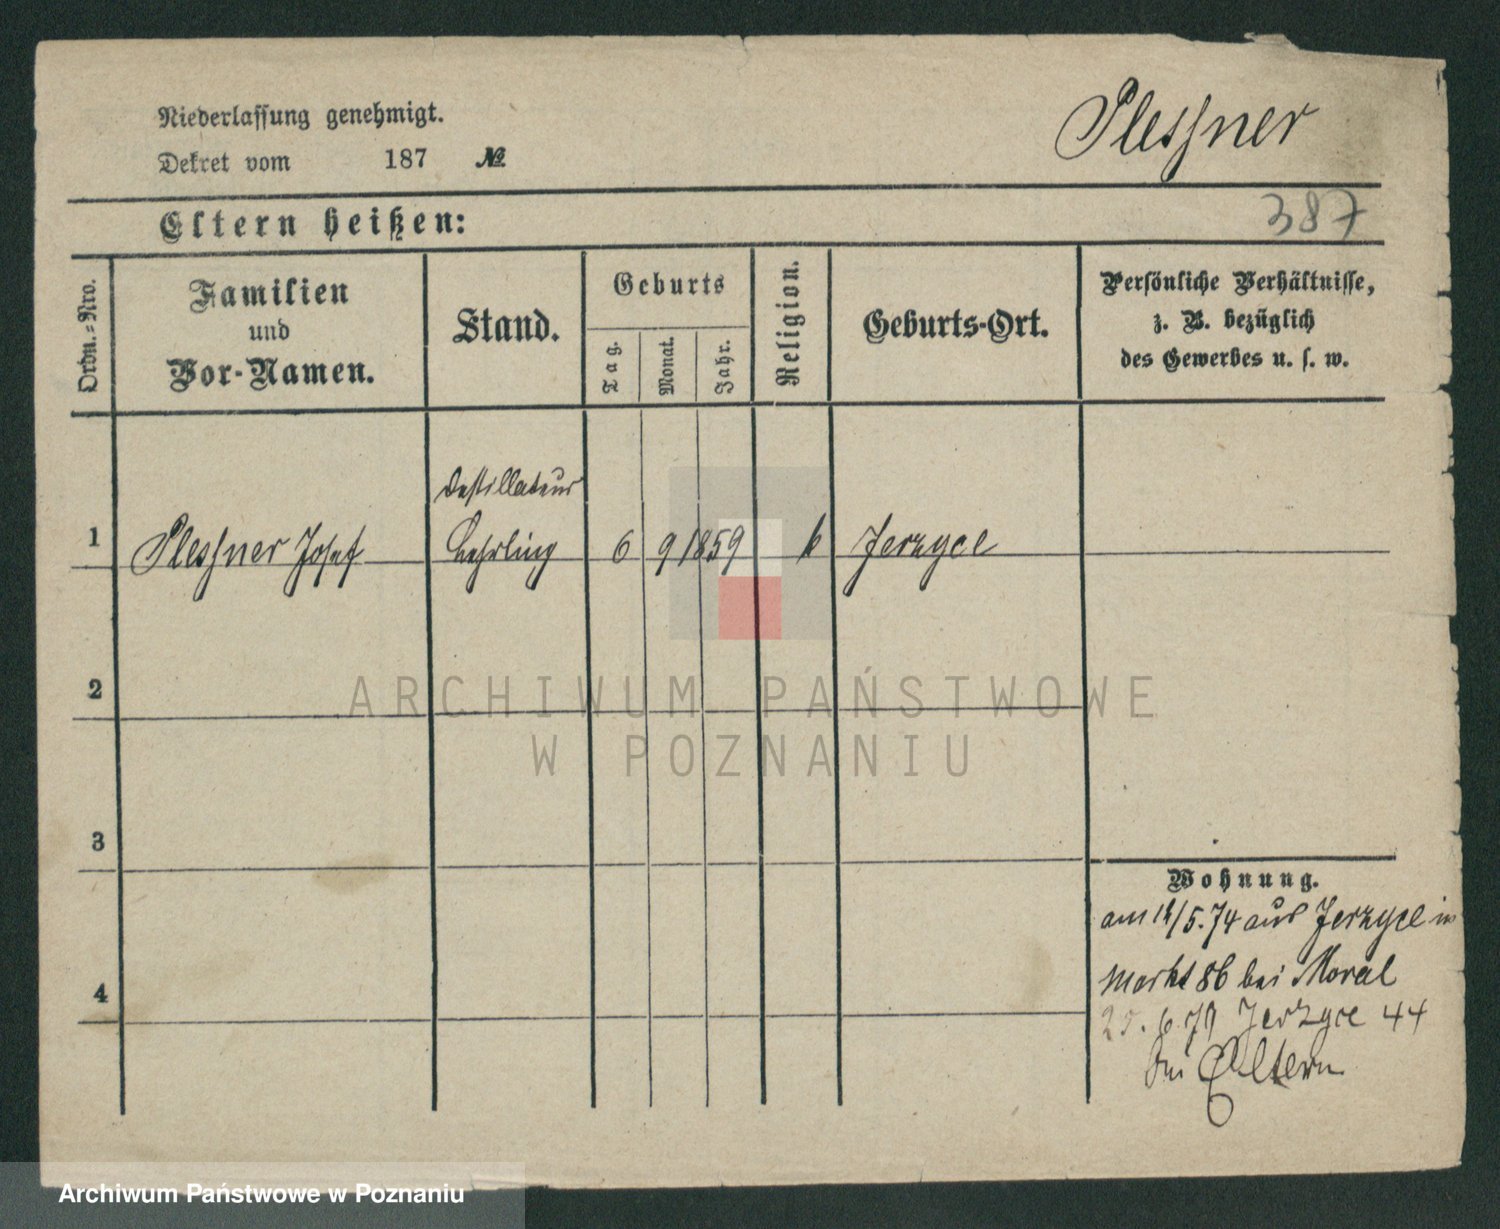 Niederlassung genehmigt.
Dekret vom 187 №
Plessner
387
Eltern heißen:
Ordn.-Nro.
Familien
und
Vor-Namen.
Stand.
Geburts
Tag.
Monat.
Jahr.
Religion.
Geburts-Ort.
Persönliche Verhältnisse,
z. B. bezüglich
des Gewerbes u. s. w.
Destillateur
1 Plessner Josef Lehrling 6 9 1859 k Jerzyce
2
ARCHIWUM PAŃSTWOWE
W POZNANIU
3
Wohnung.
am /5.74 aus Jerzyce in
Markt 86 bei Moral
25. 6 79 Jerzyce 44
bei Eltern
4
Archiwum Państwowe w Poznaniu